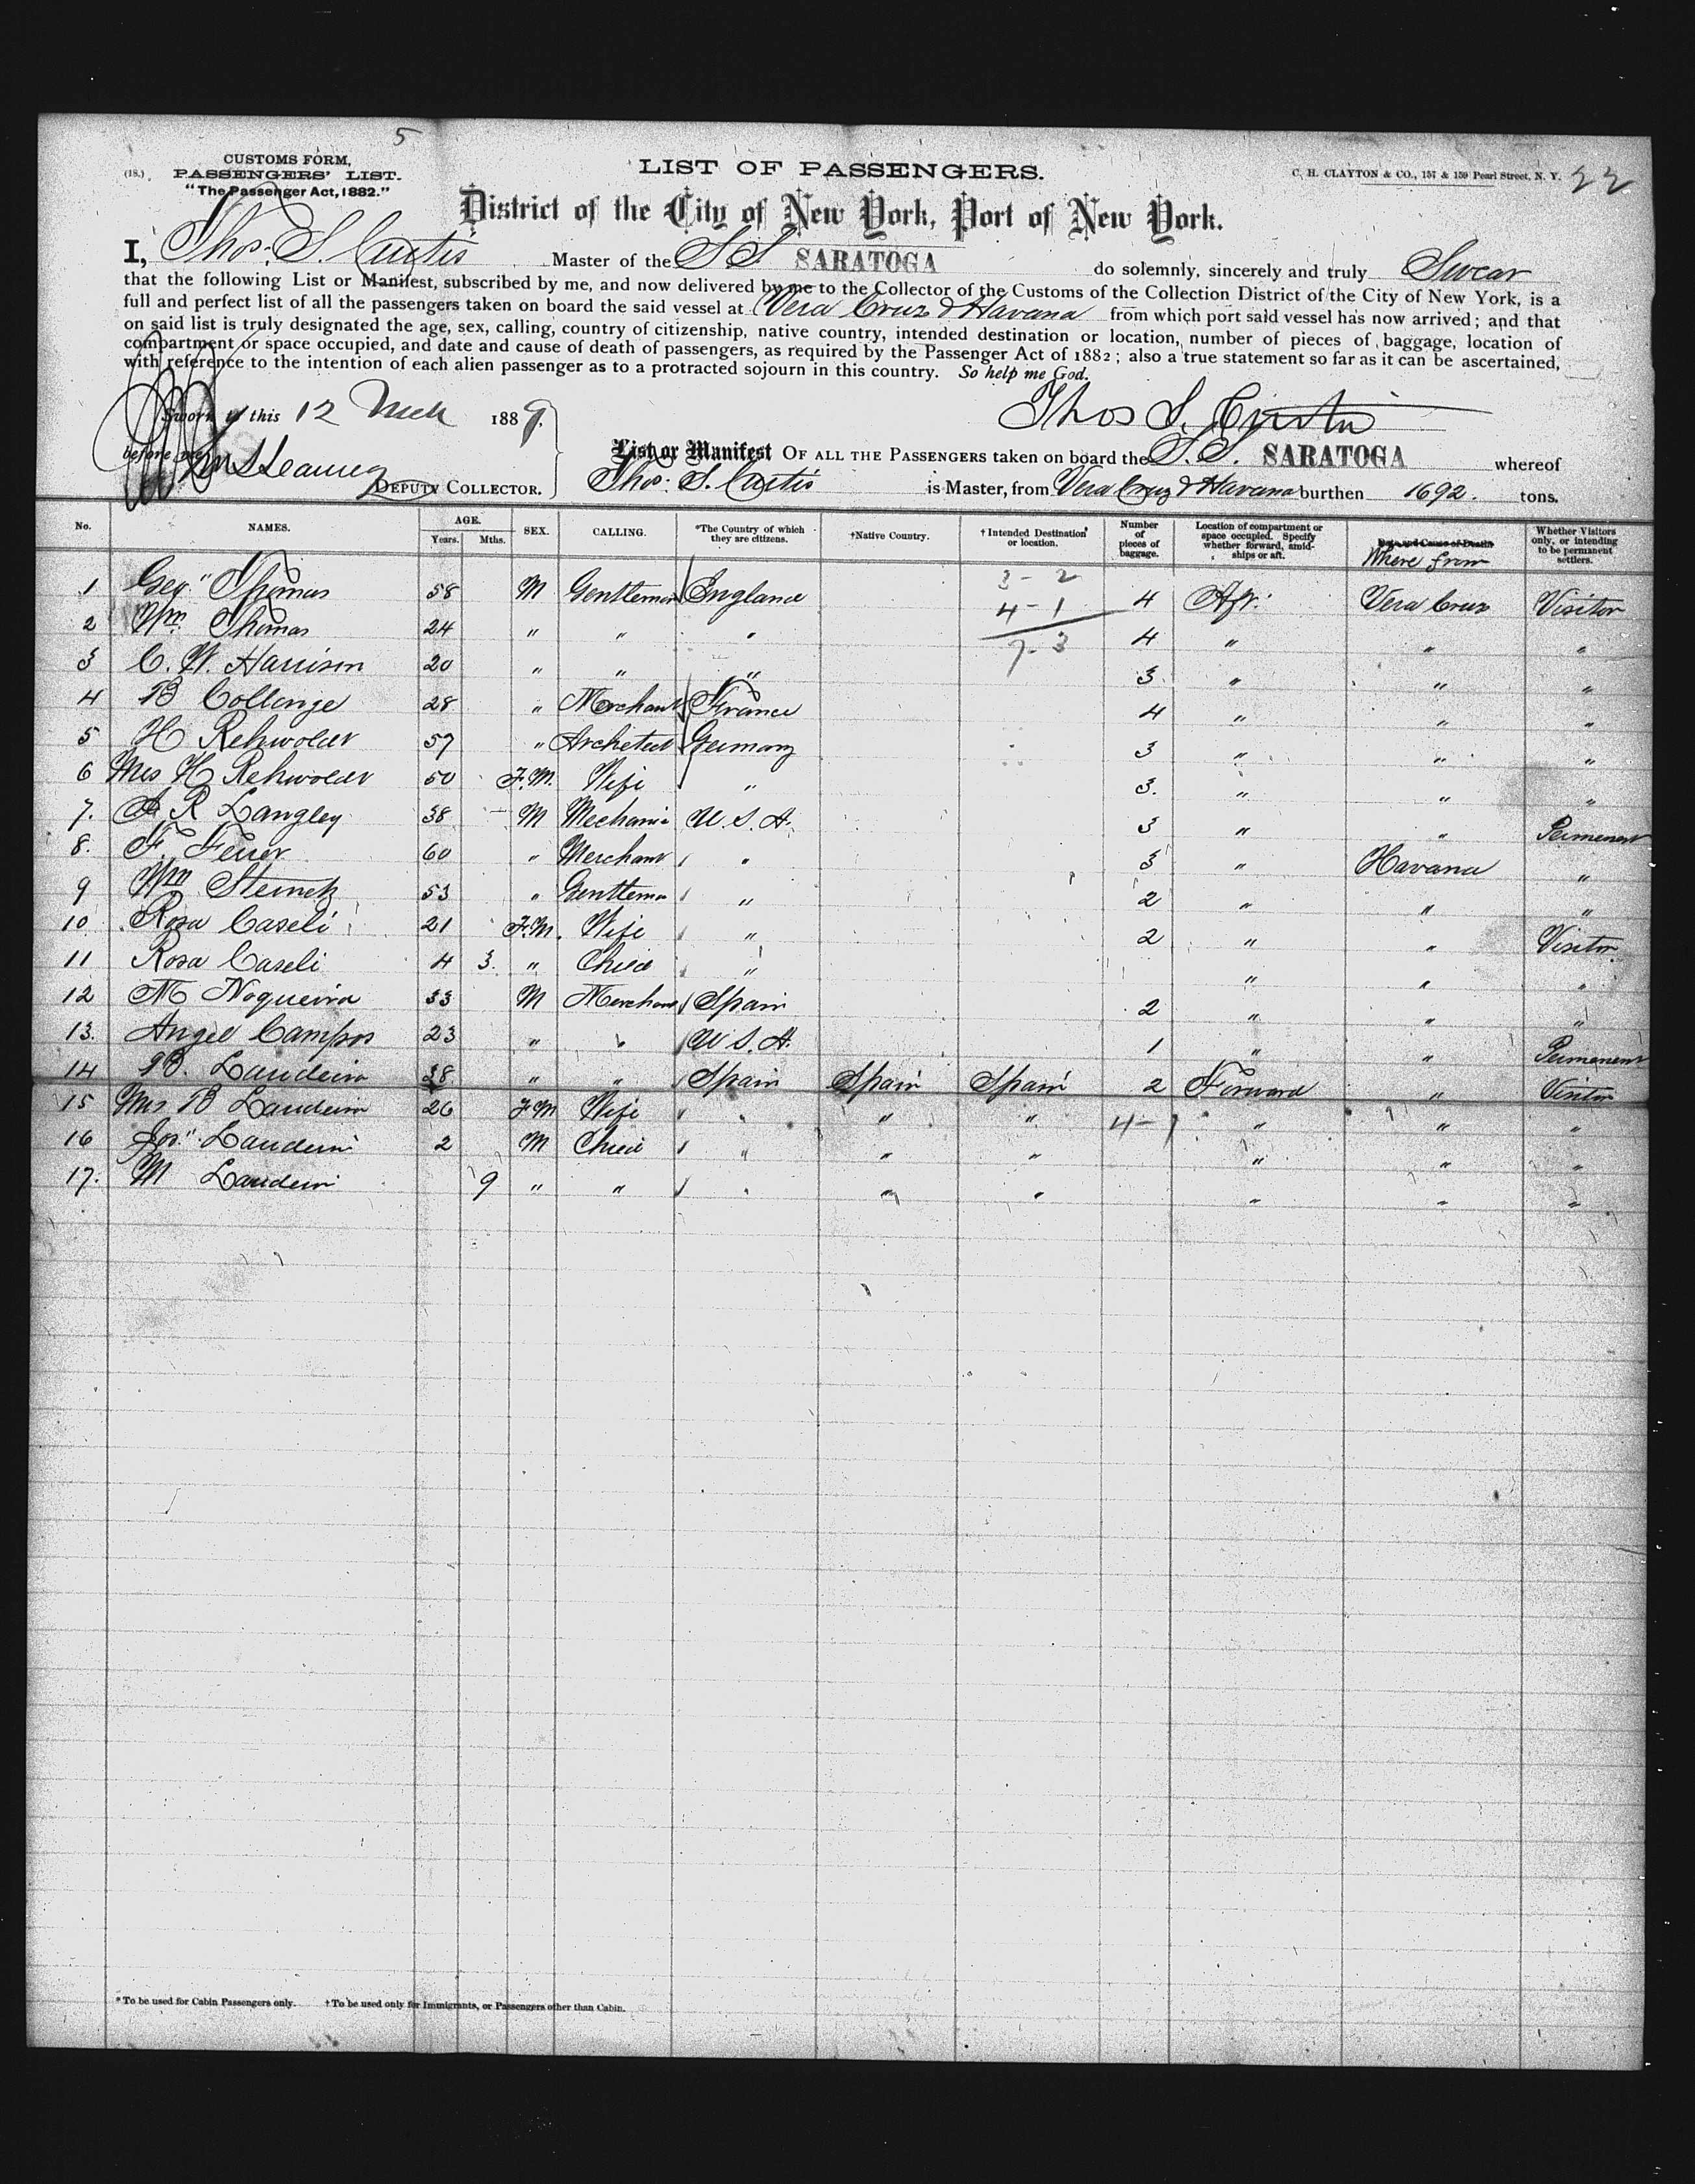 5
CUSTOMS FORM,
(18.) PASSENGERS' LIST.
"The Passenger Act, 1882."
LIST OF PASSENGERS.
C. H. CLAYTON & CO., 157 & 159 Pearl Street, N. Y. 22
District of the City of New York, Port of New York.
I, Thos. S. Curtis Master of the SS SARATOGA do solemnly, sincerely and truly Swear
that the following List or Manifest, subscribed by me, and now delivered by me to the Collector of the Customs of the Collection District of the City of New York, is a
full and perfect list of all the passengers taken on board the said vessel at Vera Cruz & Havana from which port said vessel has now arrived; and that
on said list is truly designated the age, sex, calling, country of citizenship, native country, intended destination or location, number of pieces of baggage, location of
compartment or space occupied, and date and cause of death of passengers, as required by the Passenger Act of 1882; also a true statement so far as it can be ascertained,
with reference to the intention of each alien passenger as to a protracted sojourn in this country. So help me God.
Sworn to this 12 Mch 1889. Thos S. Curtis
before me
List or Manifest OF ALL THE PASSENGERS taken on board the S.S. SARATOGA whereof
DEPUTY COLLECTOR. Thos. S. Curtis is Master, from Vera Cruz & Havana burthen 1692. tons.
No. NAMES. AGE. Years. Mths. SEX. CALLING. *The Country of which they are citizens. †Native Country. †Intended Destination or location. Number of pieces of baggage. Location of compartment or space occupied. Specify whether forward, amidships or aft. Date and Cause of Death Where from Whether Visitors only, or intending to be permanent settlers.
3 - 2
1 Geo" Thomas 58 M Gentleman England 4 - 1 4 Aft. Vera Cruz Visitor
2 Wm Thomas 24 " " " 7 - 3 4 " " "
3 C. W. Harrison 20 " " " 3 " " "
4 B Collinge 28 " Merchant France 4 " " "
5 H Rehwolder 57 " Archetect Germany 3 " " "
6 Mrs H Rehwolder 50 F.M. Wife " 3. " " "
7. A R Langley 38 - M Mechanic U.S.A. 3 " " Permenent
8. F. Ferrer 60 " Merchant " 3 " Havana "
9 Wm Steinck 53 " Gentleman " 2 " " "
10 Rosa Caseli 21 F.M. Wife " 2 " " Visitor
11 Rosa Caseli 4 3. " Child " " " "
12 M Noqueira 33 M Merchant Spain 2 " " "
13. Angel Campos 23 " " U.S.A. 1 " " Permenent
14 B. Laudeira 38 " " Spain Spain Spain 2 Forward " Visitor
15 Mrs B Laudeira 26 F M Wife " " " 4 - 1 " " "
16 Jos." Laudeira 2 M Child " " " " " "
17. M Laudeira 9 " " " " " " " "
* To be used for Cabin Passengers only. † To be used only for Immigrants, or Passengers other than Cabin.